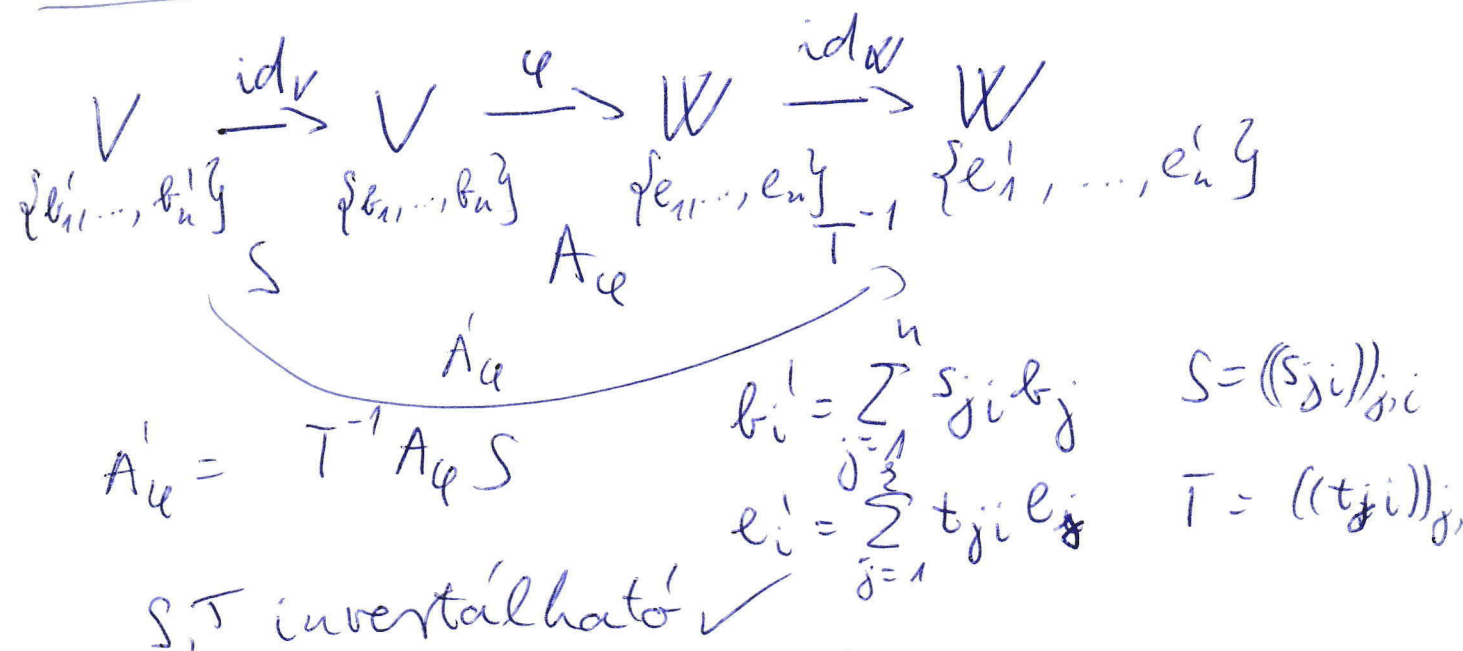 V \xrightarrow{id_V} V \xrightarrow{φ} W \xrightarrow{id_W} W
{b'_1, ..., b'_n} {b_1, ..., b_n} {e_1, ..., e_n} {e'_1, ..., e'_n}
S A_φ T^{-1}
A'_φ
A'_φ = T^{-1} A_φ S
b'_i = \sum_{j=1}^{n} s_{ji} b_j S = ((s_{ji}))_{j,i}
e'_i = \sum_{j=1} t_{ji} e_j T = ((t_{ji}))_{j,
S, T invertálható ✓